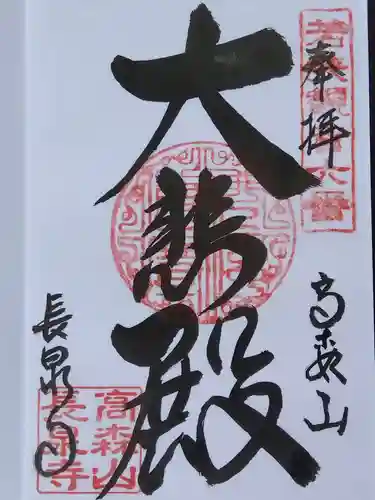 奉拝
高森山
大悲殿
長泉寺
高森山
長泉寺